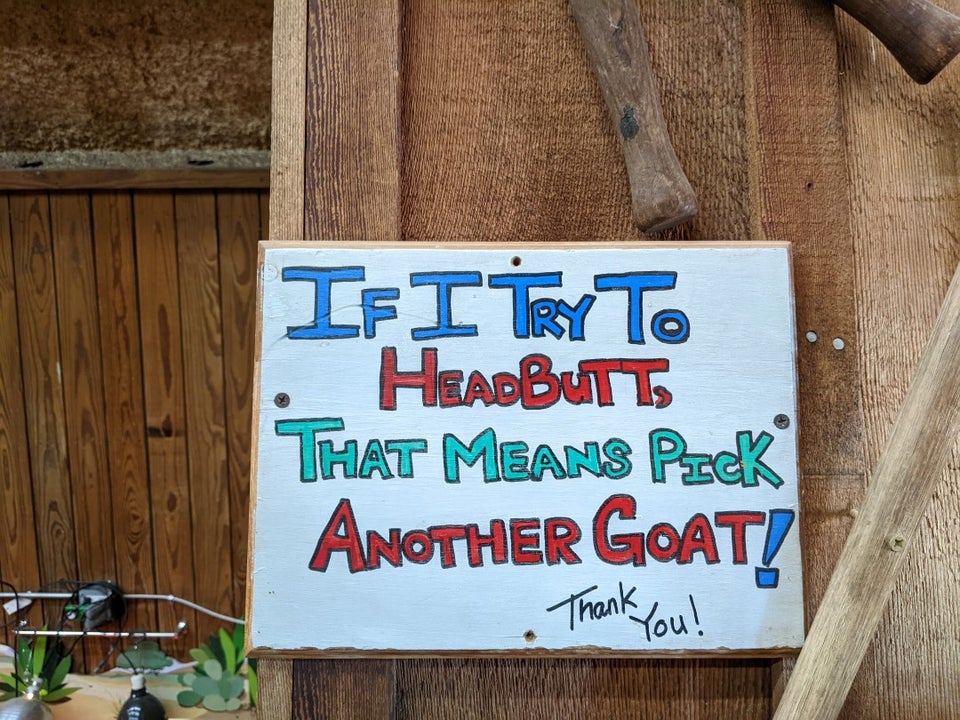 If I Try To
HeadButt,
That Means Pick
Another Goat!
Thank
You!